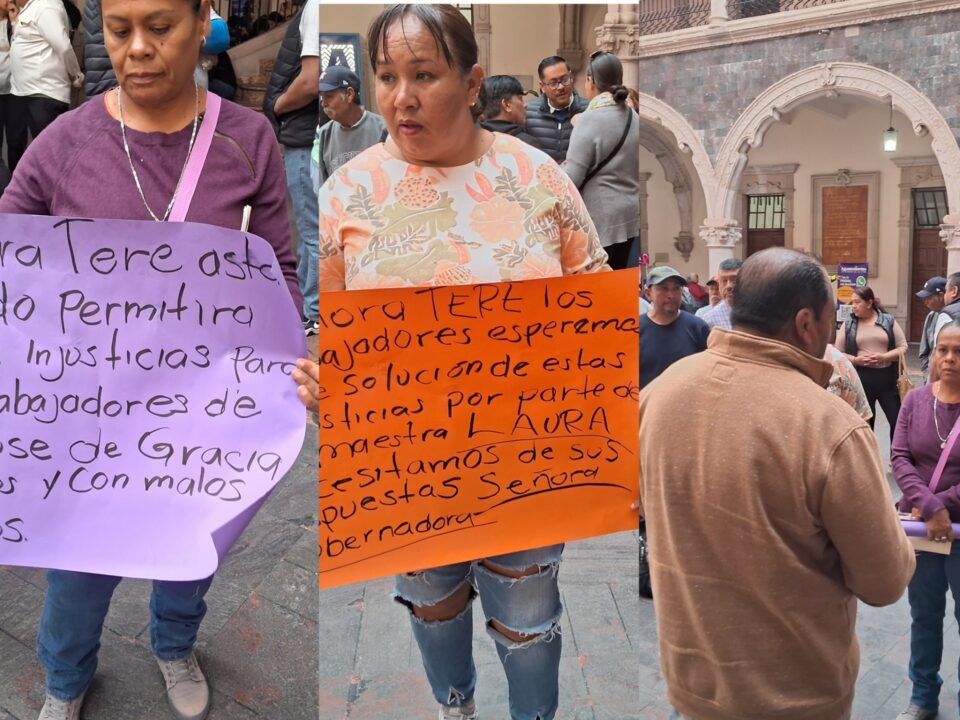 ra Tere aste
do Permitira
Injusticias Para
abajadores de
ose de Gracia
s y Con malos
os.
ñora TERE los
bajadores esperamo
e Solución de estas
sticias por parte de
maestra LAURA
cesitamos de sus
puestas Señora
obernadora